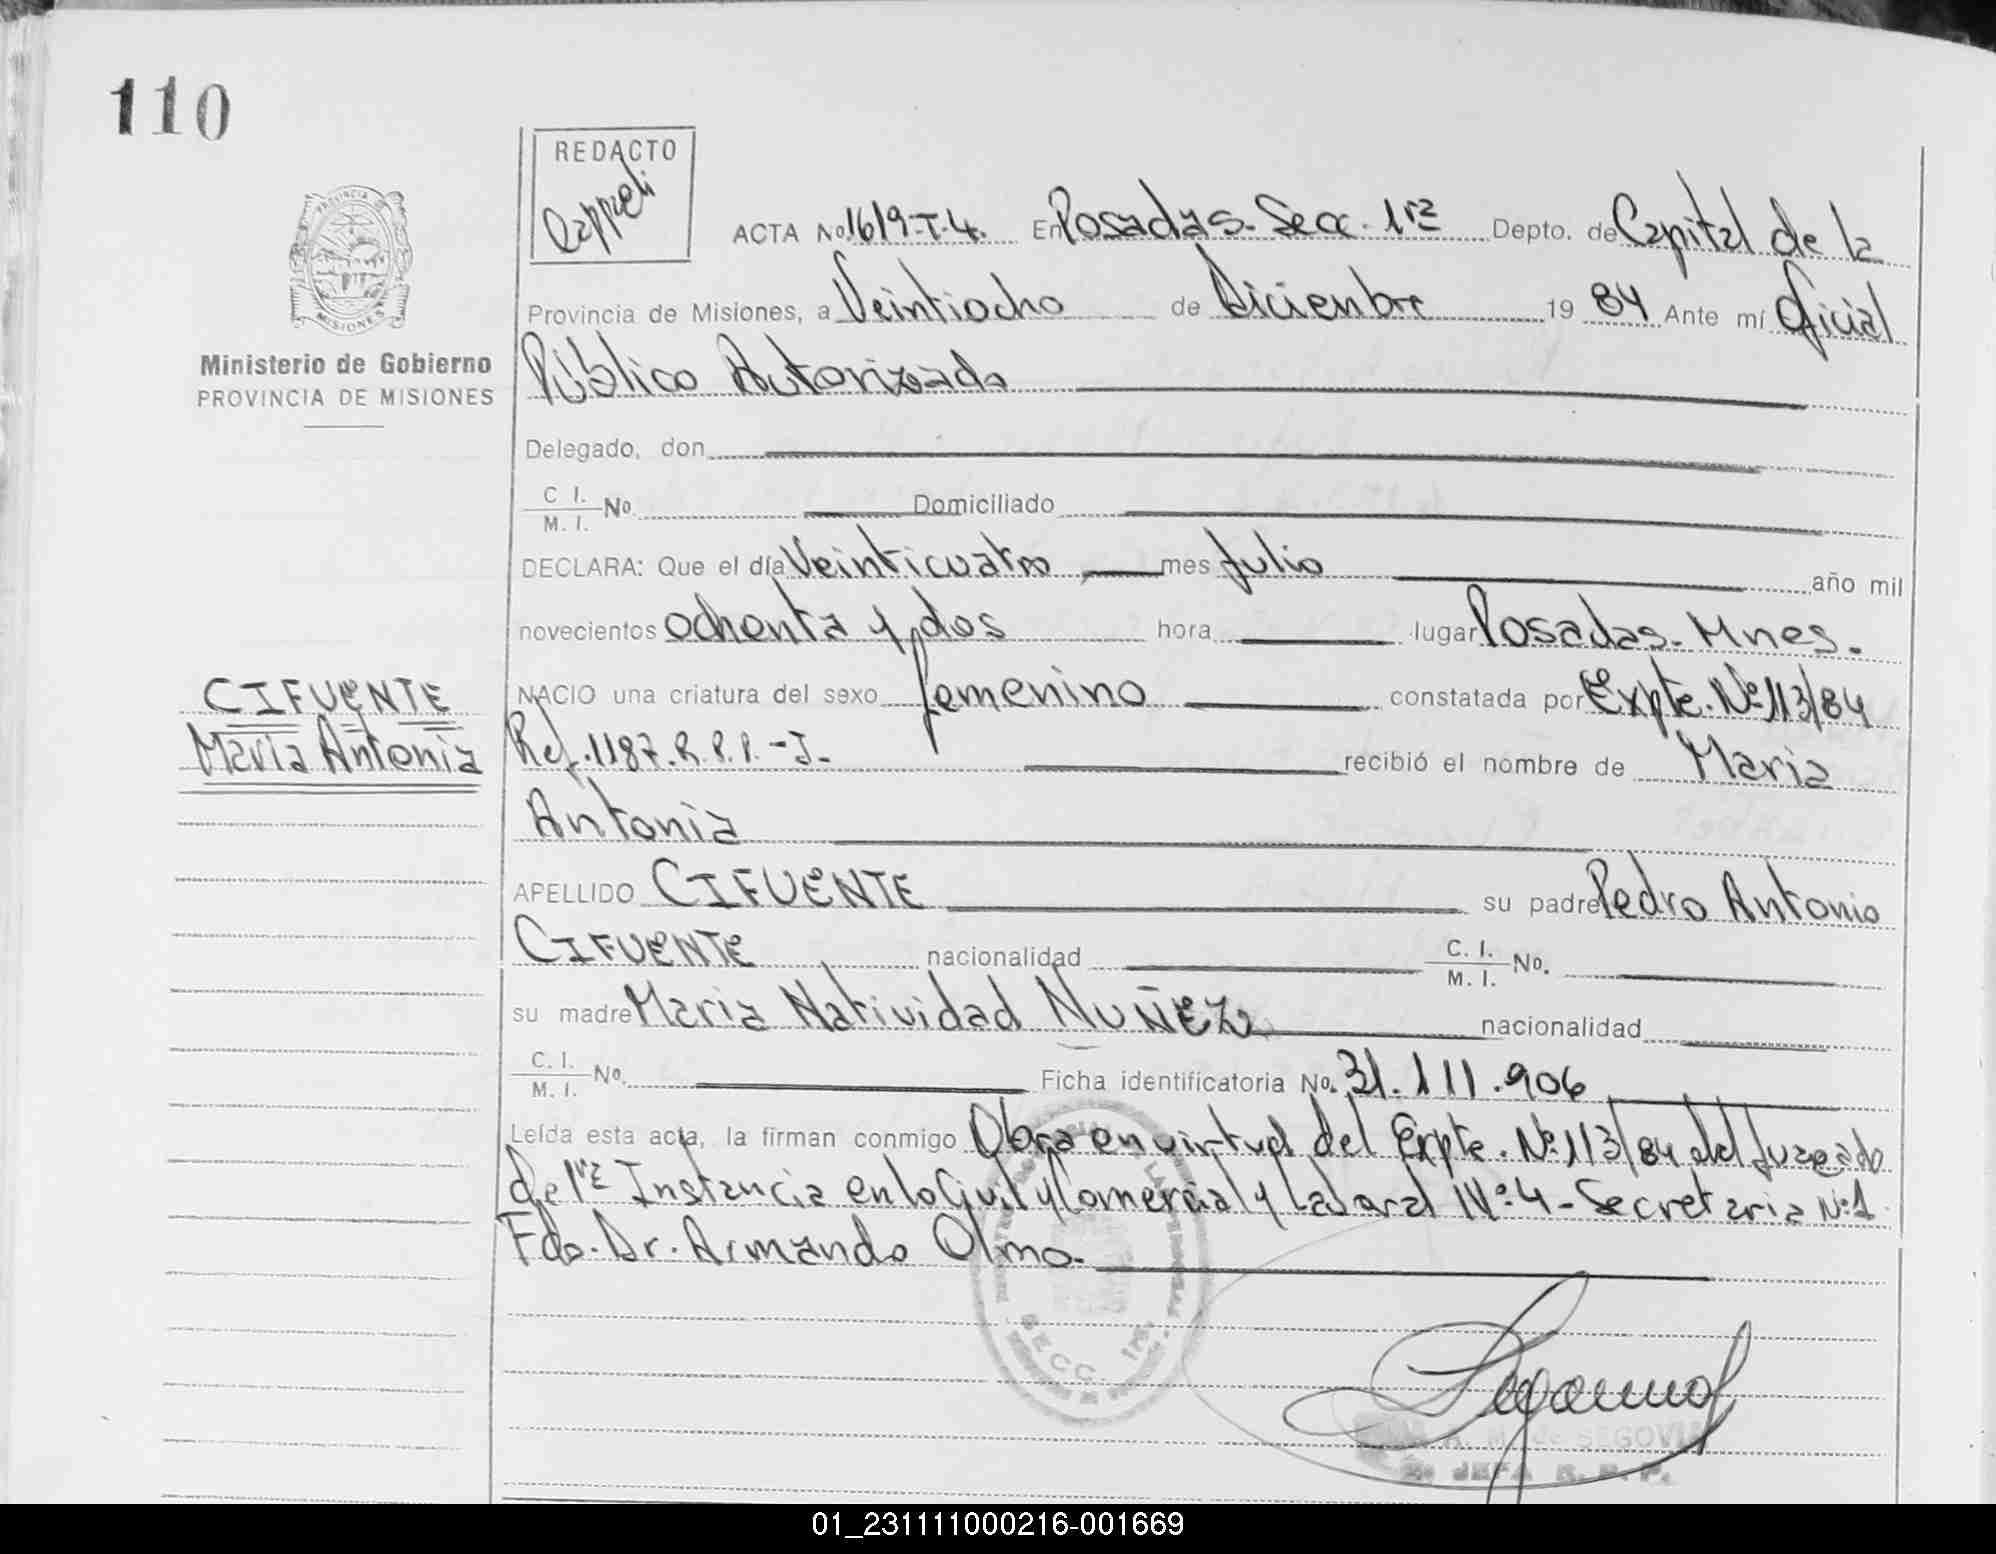 110
REDACTO
Cappeli
PROVINCIA DE
MISIONES
Ministerio de Gobierno
PROVINCIA DE MISIONES
ACTA No. 1619-T-4. En Posadas - Secc. 1ra Depto. de Capital de la
Provincia de Misiones, a Veintiocho de Diciembre 19 84 Ante mí Oficial
Público Autorizado
Delegado, don
C I. M. I. No. Domiciliado
DECLARA: Que el día Veinticuatro mes Julio año mil
novecientos ochenta y dos hora lugar Posadas - Mnes.
CIFUENTE
María Antonia
NACIO una criatura del sexo femenino constatada por Expte. Nº 113/84
Ref. 1187. R.P.P. - J. recibió el nombre de María
Antonia
APELLIDO CIFUENTE su padre Pedro Antonio
CIFUENTE nacionalidad C. I. M. I. No.
su madre María Natividad NUÑEZ nacionalidad
C. I. M. I. No. Ficha identificatoria No. 31.111.906
Leída esta acta, la firman conmigo Obra en virtud del Expte. Nº 113/84 del Juzgado
de 1ra Instancia en lo Civil y Comercial y Laboral Nº 4 - Secretaria Nº 1
Fdo. Dr. Armando Olmo.
SECC. 1ra.
M. de SEGOVIA
JEFA R. P. P.
01_231111000216-001669